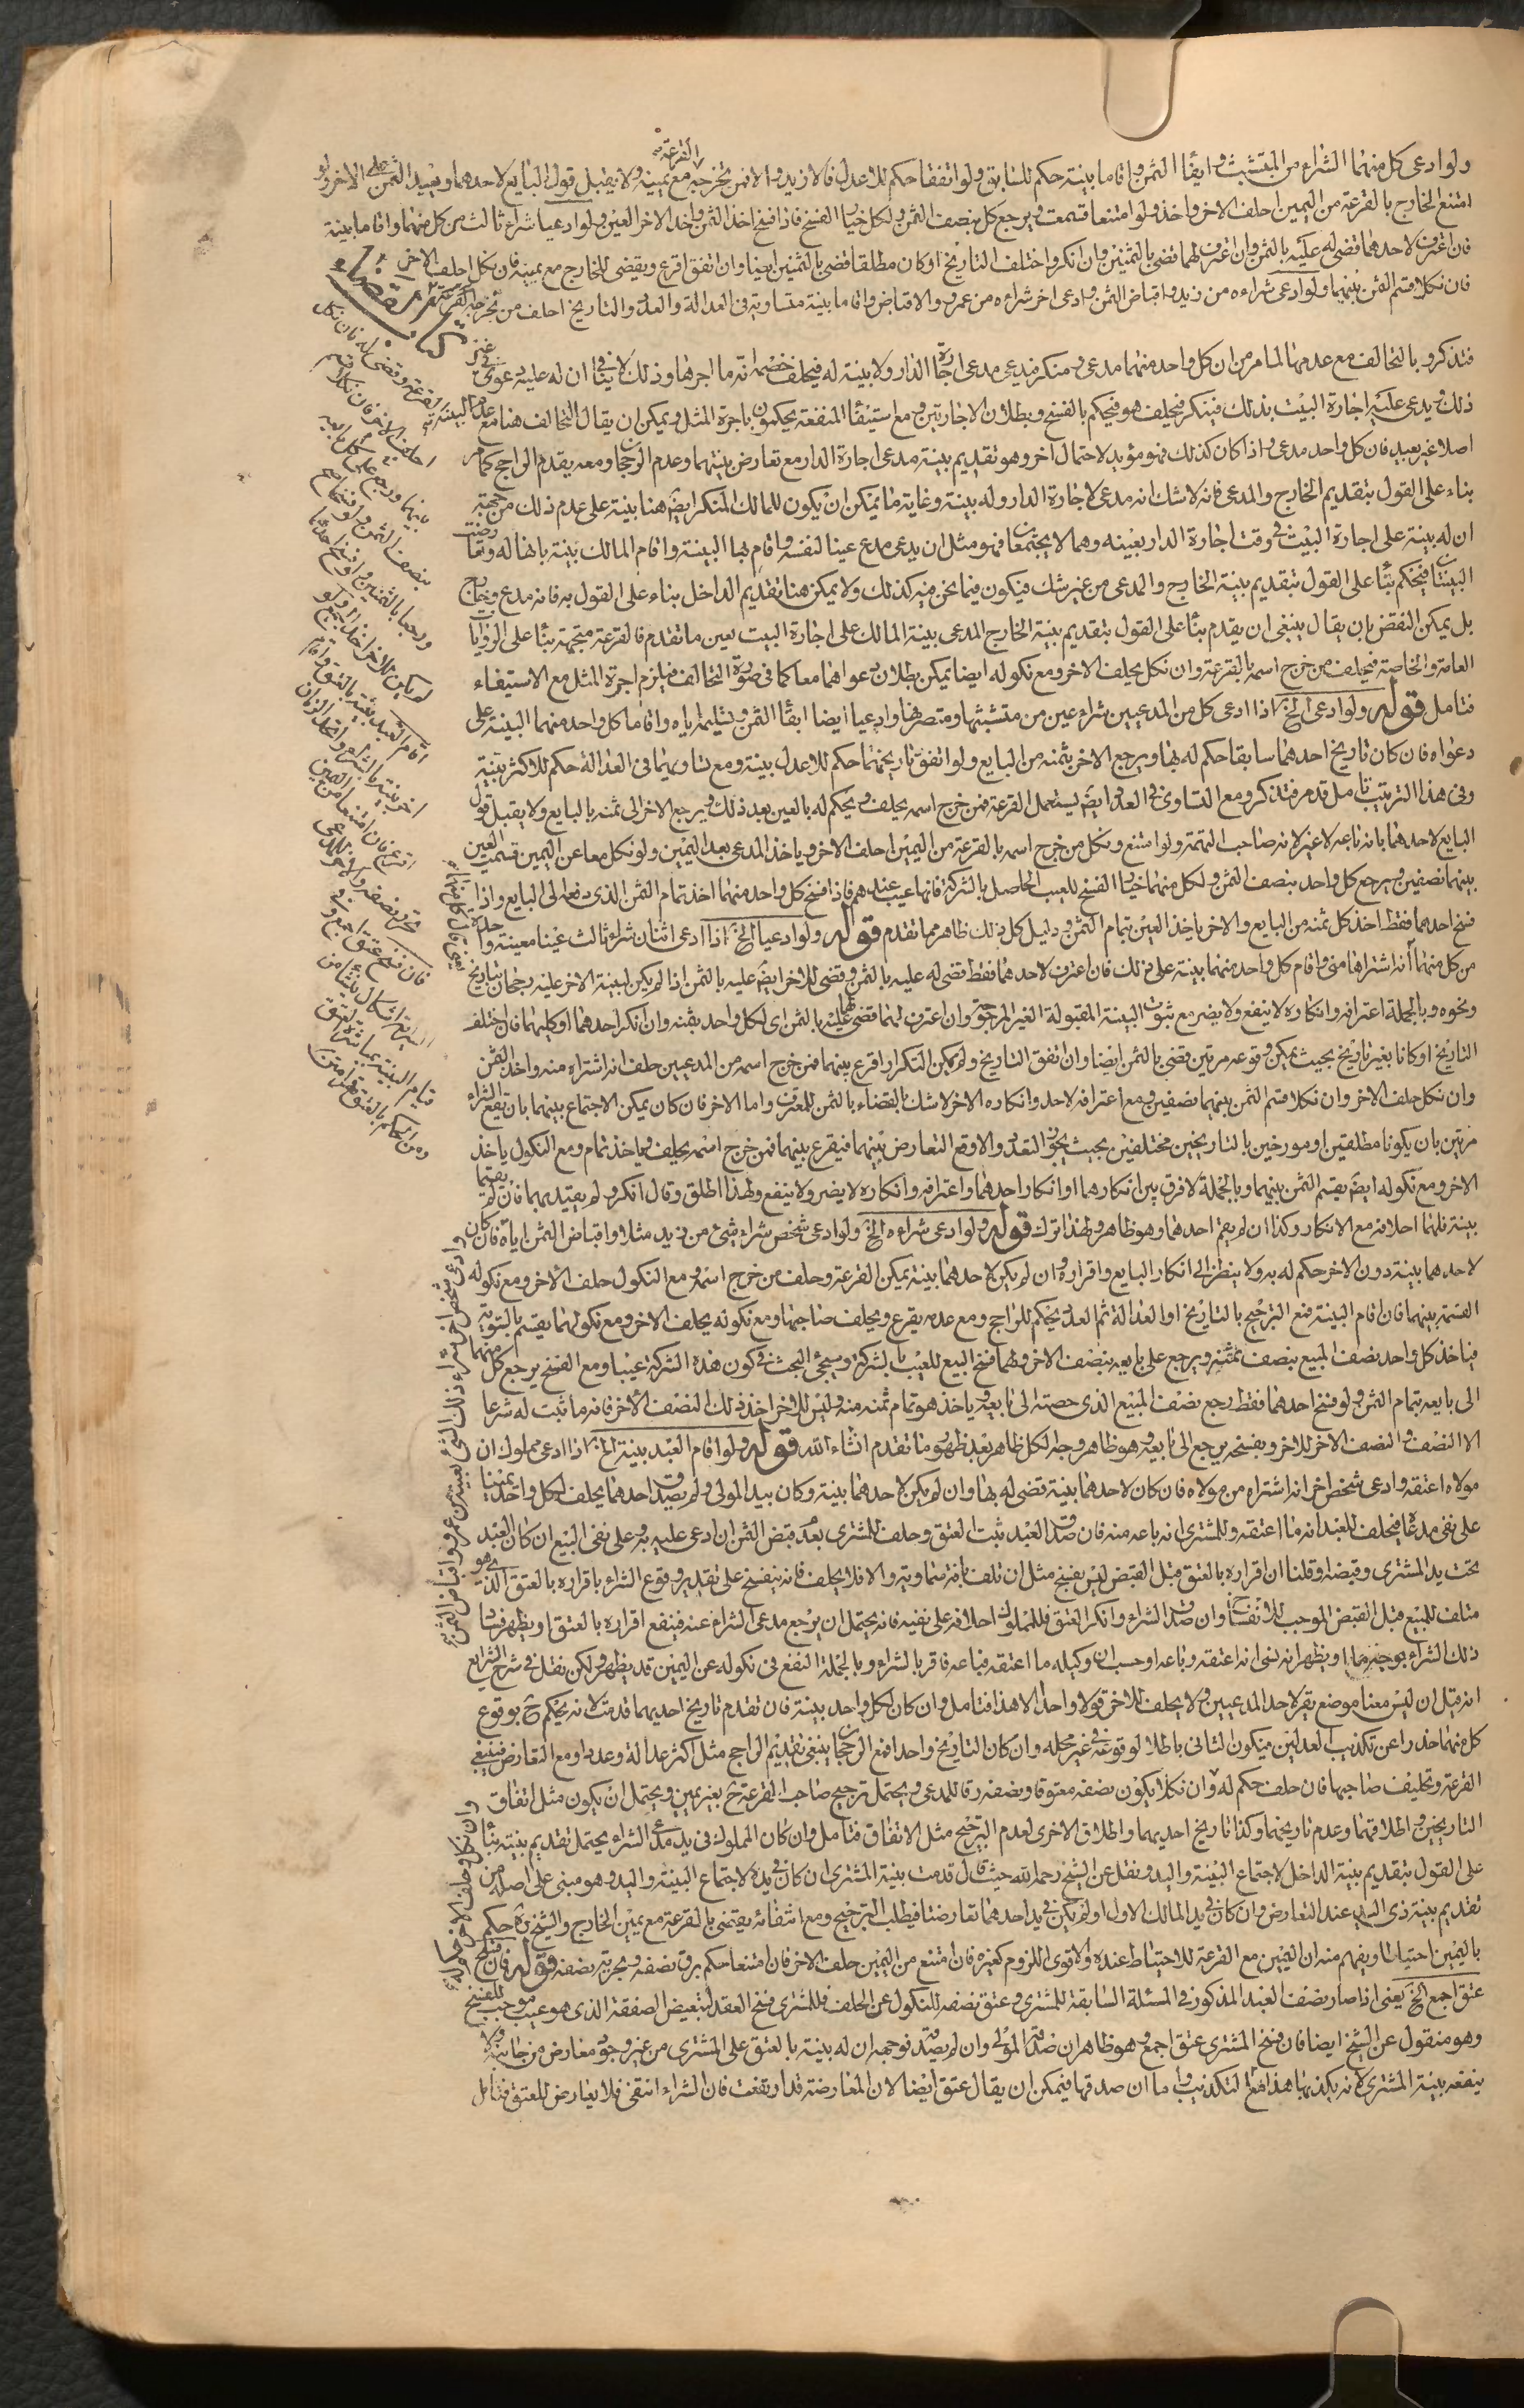 ولو ادعى كل منهما الشراء من المتشبث وايفاء الثمن واقاما بينة حكم للسابق ولو اتفقا حكم للاعدل فالازيد والا فمن تخرجه القرعة مع يمينه ولا يقبل قول البايع لاحدهما ويعيد الثمن على الاخر ولو
امتنع الخارج بالقرعة من اليمين احلف الاخر واخذ ولو امتنعا قسمت ويرجع كل بنصف الثمن ولكل خيار الفسخ فاذا فسخ اخذ الثمن واخذ الاخر العين ولو ادعيا شراء ثالث من كل منهما واقاما بينة
فان اعترف لاحدهما قضى له عليه بالثمن وان اعترف لهما قضى بالثمنين وان انكر واختلف التاريخ او كان مطلقا قضى بالثمنين ايضا وان اتفق اقرع ويقضى للخارج مع يمينه فان نكل احلف الاخر
فان نكلا قسم الثمن بينهما ولو ادعى شراءه من زيد واقباض الثمن وادعى اخر شراءه من عمرو والاقباض واقاما بينة متساوية في العدالة والعدد والتاريخ احلف من تخرجه القرعة
كتاب القضاء
فتذكر وبالتحالف مع عدمها لما مر من ان كل واحد منهما مدعى ومنكر فيدعى مدعى اجارة الدار ولا بينة له فيحلف خصمه انه ما اجرها وذلك لا ينافي ان له عليه دعوى في غير
ذلك ويدعى عليه اجارة البيت بذلك فينكر فيحلف هو فيحكم بالفسخ وبطلان الاجارتين ومع استيفاء المنفعة يحكمون باجرة المثل ويمكن ان يقال التحالف هنا مع عدم البينة
اصلا غير بعيد فان كل واحد مدعى واذا كان كذلك فهو مؤيد لاحتمال اخر وهو تقديم بينة مدعى اجارة الدار مع تعارض بينتهما وعدم الرجحان ومعه يقدم الراجح كما مر
بناء على القول بتقديم الخارج والمدعى فانه لا شك انه مدعى لاجارة الدار وله بينة وغاية ما يمكن ان يكون للمالك المنكر ايضا هنا بينة على عدم ذلك من جهة
ان له بينة على اجارة البيت في وقت اجارة الدار بعينه وهما لا يجتمعان فهو مثل ان يدعى مدع عينا لنفسه واقام بها البينة واقام المالك بينة بانها له وتعارضت
البينتان فيحكم بناء على القول بتقديم بينة الخارج والمدعى من غير شك فيكون فيما نحن فيه كذلك ولا يمكن هنا تقديم الداخل بناء على القول به فانه مدع وخارج
بل يمكن النقض بان يقال ينبغي ان يقدم بناء على القول بتقديم بينة الخارج المدعى بينة المالك على اجارة البيت بعين ما تقدم فالقرعة متجهة بناء على الروايات
العامة والخاصة فيحلف من خرج اسمه بالقرعة وان نكل يحلف الاخر ومع نكوله ايضا يمكن بطلان دعواهما معا كما في صورة التحالف فيلزم اجرة المثل مع الاستيفاء
فتامل قوله ولو ادعى الخ اذا ادعى كل من المدعيين شراء عين من متشبثها ومتصرفها وادعيا ايضا ايفاء الثمن وتسليمه اياه واقاما كل واحد منهما البينة على
دعواه فان كان تاريخ احدهما سابقا حكم له بها ويرجع الاخر بثمنه من البايع ولو اتفق تاريخهما حكم للاعدل بينة ومع تساويهما في العدالة حكم للاكثر بينة
وفي هذا الترتيب تامل قد مر فتذكر ومع التساوي في العدد ايضا يستعمل القرعة فمن خرج اسمه يحلف ويحكم له بالعين بعد ذلك ويرجع الاخر الى ثمنه بالبايع ولا يقبل قول
البايع لاحدهما بانه باعه لا غير لانه صاحب التتمة ولو امتنع ونكل من خرج اسمه بالقرعة من اليمين احلف الاخر وياخذ المدعى بعد اليمين ولو نكل معا عن اليمين قسمت العين
بينهما نصفين ويرجع كل واحد بنصف الثمن ولكل منهما خيار الفسخ للعيب الحاصل بالشركة فانها عيب عندهم فاذا فسخ كل واحد منهما اخذ تمام الثمن الذي دفعه الى البايع واذا
فسخ احدهما فقط اخذ كل ثمنه من البايع والاخر ياخذ العين بتمام الثمن ودليل كل ذلك ظاهر مما تقدم قوله ولو ادعيا الخ اذا ادعى اثنان شراء ثالث عينا معينة واحدة
من كل منهما انه اشتراها مني واقام كل واحد منهما بينة على ذلك فان اعترف لاحدهما فقط قضى له عليه بالثمن وقضى للاخر ايضا عليه بالثمن اذا لم يكن لبينة الاخر عليه رجحان بتاريخ
ونحوه وبالجملة اعترافه وانكاره لا ينفع ولا يضر مع ثبوت البينة المقبولة الغير المرجوحة وان اعترف لهما قضى لهما عليه بالثمن اي لكل واحد بثمنه وان انكر احدهما او كليهما فان اختلف
التاريخ او كانا بغير تاريخ بحيث يمكن وقوعه مرتين قضى بالثمن ايضا وان اتفق التاريخ ولم يمكن التكرار اقرع بينهما فمن خرج اسمه من المدعيين حلف انه اشتراه منه واخذ الثمن
وان نكل حلف الاخر وان نكلا قسم الثمن بينهما نصفين ومع اعترافه لاحد وانكاره الاخر لا شك بالقضاء بالثمن للمعترف واما الاخر فان كان يمكن الاجتماع بينهما بان يقع الشراء
مرتين بان يكونا مطلقين او مورخين بالتاريخين مختلفين بحيث يجوز التعدد والا وقع التعارض بينهما فيقرع بينهما فمن خرج اسمه يحلف وياخذ تمام ومع النكول ياخذ
الاخر ومع نكوله ايضا يقسم الثمن بينهما وبالجملة لا فرق بين انكارهما او انكار احدهما واعترافه وانكاره لا يضر ولا ينفع ولهذا اطلق وقال انكر ولم يقيد بهما فان لم يقيما
بينة فلهما احلافه مع الانكار وكذا ان لم يقم احدهما وهو ظاهر ولهذا ترك قوله ولو ادعى شراءه الخ ولو ادعى شخص شراء شئ من زيد مثلا واقباض الثمن اياه فان كان
لاحدهما بينة دون الاخر حكم له به ولا ينظر الى انكار البايع واقراره وان لم يكن لاحدهما بينة يمكن القرعة وحلف من خرج اسمه ومع النكول حلف الاخر ومع نكوله
القسمة بينهما فان اقام البينة فمع الترجيح بالتاريخ او العدالة ثم العدد يحكم للراجح ومع عدمه يقرع ويحلف صاحبها ومع نكوله يحلف الاخر ومع نكولهما يقسم بالسوية
فياخذ كل واحد نصف المبيع بنصف ثمنه ويرجع على بايعه بنصف الاخر ولهما فسخ البيع للعيب بالشركة وسيجئ البحث في كون هذه الشركة عيبا ومع الفسخ يرجع كل منهما
الى بايعه بتمام الثمن ولو فسخ احدهما فقط رجع نصف المبيع الذي حصته الى بايعه وياخذ هو تمام ثمنه منه وليس للاخر اخذ ذلك النصف الاخر فانه ما ثبت له شرعا
الا النصف والنصف الاخر للاخر وبفسخه يرجع الى بايعه وهو ظاهر وجه الكل ظاهر بعد ظهور ما تقدم انشاء الله قوله ولو اقام العبد بينة الخ اذا ادعى مملوك ان
مولاه اعتقه وادعى شخص اخر انه اشتراه من مولاه فان كان لاحدهما بينة قضى له بها وان لم يكن لاحدهما بينة وكان بيد المولى ولم يصدق احدهما يحلف لكل واحد يمينا
على نفي مدعاه فيحلف للعبد انه ما اعتقه وللمشتري انه باعه منه فان صدق العبد ثبت العتق وحلف للمشتري بعدم قبض الثمن ان ادعى عليه به وعلى نفي البيع ان كان العبد
تحت يد المشتري وقبضه او قلنا ان اقراره بالعتق قبل القبض ليس بفسخ مثل ان تلف بافة سماوية والا فلا يحلف فانه ينفسخ على تقدير وقوع الشراء باقراره بالعتق الذي هو
متلف للمبيع قبل القبض الموجب للانفساخ وان صدق الشراء وانكر العتق فللمملوك احلافه على نفيه فانه يحتمل ان يرجع مدعى الشراء عنه فينفع اقراره بالعتق او يظهر فساد
ذلك الشراء بوجه ما او يظهر انه نسي انه اعتقه وباعه او حسب ان وكيله ما اعتقه فباعه فاقر بالشراء وبالجملة النفع في نكوله عن اليمين قد يظهر ولكن نقل في شرح الشرايع
انه قيل ان ليس معنا موضع يقر لاحد المدعيين ولا يحلف للاخر قولا واحدا الا هذا فتامل وان كان لكل واحد بينة فان تقدم تاريخ احديهما قدمت لانه يحكم ح بوقوع
كل منهما حذرا عن تكذيب العدلين فيكون الثاني باطلا لوقوعه في غير محله وان كان التاريخ واحدا فمع الرجحان ينبغي تقديم الراجح مثل اكثر عدالة وعددا ومع التعارض فينبغي
القرعة وتحليف صاحبها فان حلف حكم له وان نكلا يكون نصفه معتوقا ونصفه رقا للمدعى ويحتمل ترجيح صاحب القرعة ح بغير يمين ويحتمل ان يكون مثل اتفاق
التاريخين اطلاقهما وعدم تاريخهما وكذا تاريخ احديهما واطلاق الاخرى لعدم الترجيح مثل الاتفاق فتامل وان كان المملوك في يد مدعى الشراء يحتمل تقديم بينته بناء
على القول بتقديم بينة الداخل لاجتماع البينة واليد ونقل عن الشيخ رحمه الله حيث قال قدمت بينة المشتري ان كان في يده لاجتماع البينة واليد وهو مبني على اصله من
تقديم بينة ذي اليد عند التعارض وان كان في يد المالك الاول او لم يكن في يد احدهما تعارضتا فيطلب الترجيح ومع انتفائه يقضى بالقرعة مع يمين الخارج والشيخ ره حكم
باليمين احتياطا ويفهم منه ان اليمين مع القرعة للاحتياط عنده والاقوى اللزوم كغيره فان امتنع من اليمين حلف الاخر فان امتنعا حكم برق نصفه وبحرية نصفه قوله فان فسخ
عتق اجمع الخ يعني اذا صار نصف العبد المذكور في المسئلة السابقة للمشتري وعتق نصفه للنكول عن الحلف فللمشتري فسخ العقد لتبعيض الصفقة الذي هو عيب موجب للفسخ
وهو منقول عن الشيخ ايضا فان فسخ المشتري عتق اجمع وهو ظاهر ان صدقه المولى وان لم يصدقه فوجهه ان له بينة بالعتق على المشتري من غير وجود معارض من جانبه ولا
ينفعه بينة المشتري لانه يكذبها هذا مع التكذيب واما ان صدقها فيمكن ان يقال عتق ايضا لان المعارضة قد ارتفعت فان الشراء انتفى فلا يعارض للعتق فتامل
القرعة وقضى له فان نكل
احلف الاخر فان نكلا قسم
بينهما ورجع كل على بايعه
بنصف الثمن ولو فسخا
ورجعا بالثمنين ولو فسخ احدهما
لم يكن للاخر اخذ الجميع ولو
اقام العبد بينة بالعتق واقام
اخر بينة بالشراء واتحد الزمان
اقرع فان امتنعا من اليمين
تحرر نصفه والاخر للمدعى
فان فسخ عتق اجمع
قيام البينة بمباشرة العتق
وادعى شخص اخر شراء ذلك الشئ بعينه من عمرو واقباض الثمن
وان نكل وحلف الاخر حكم له